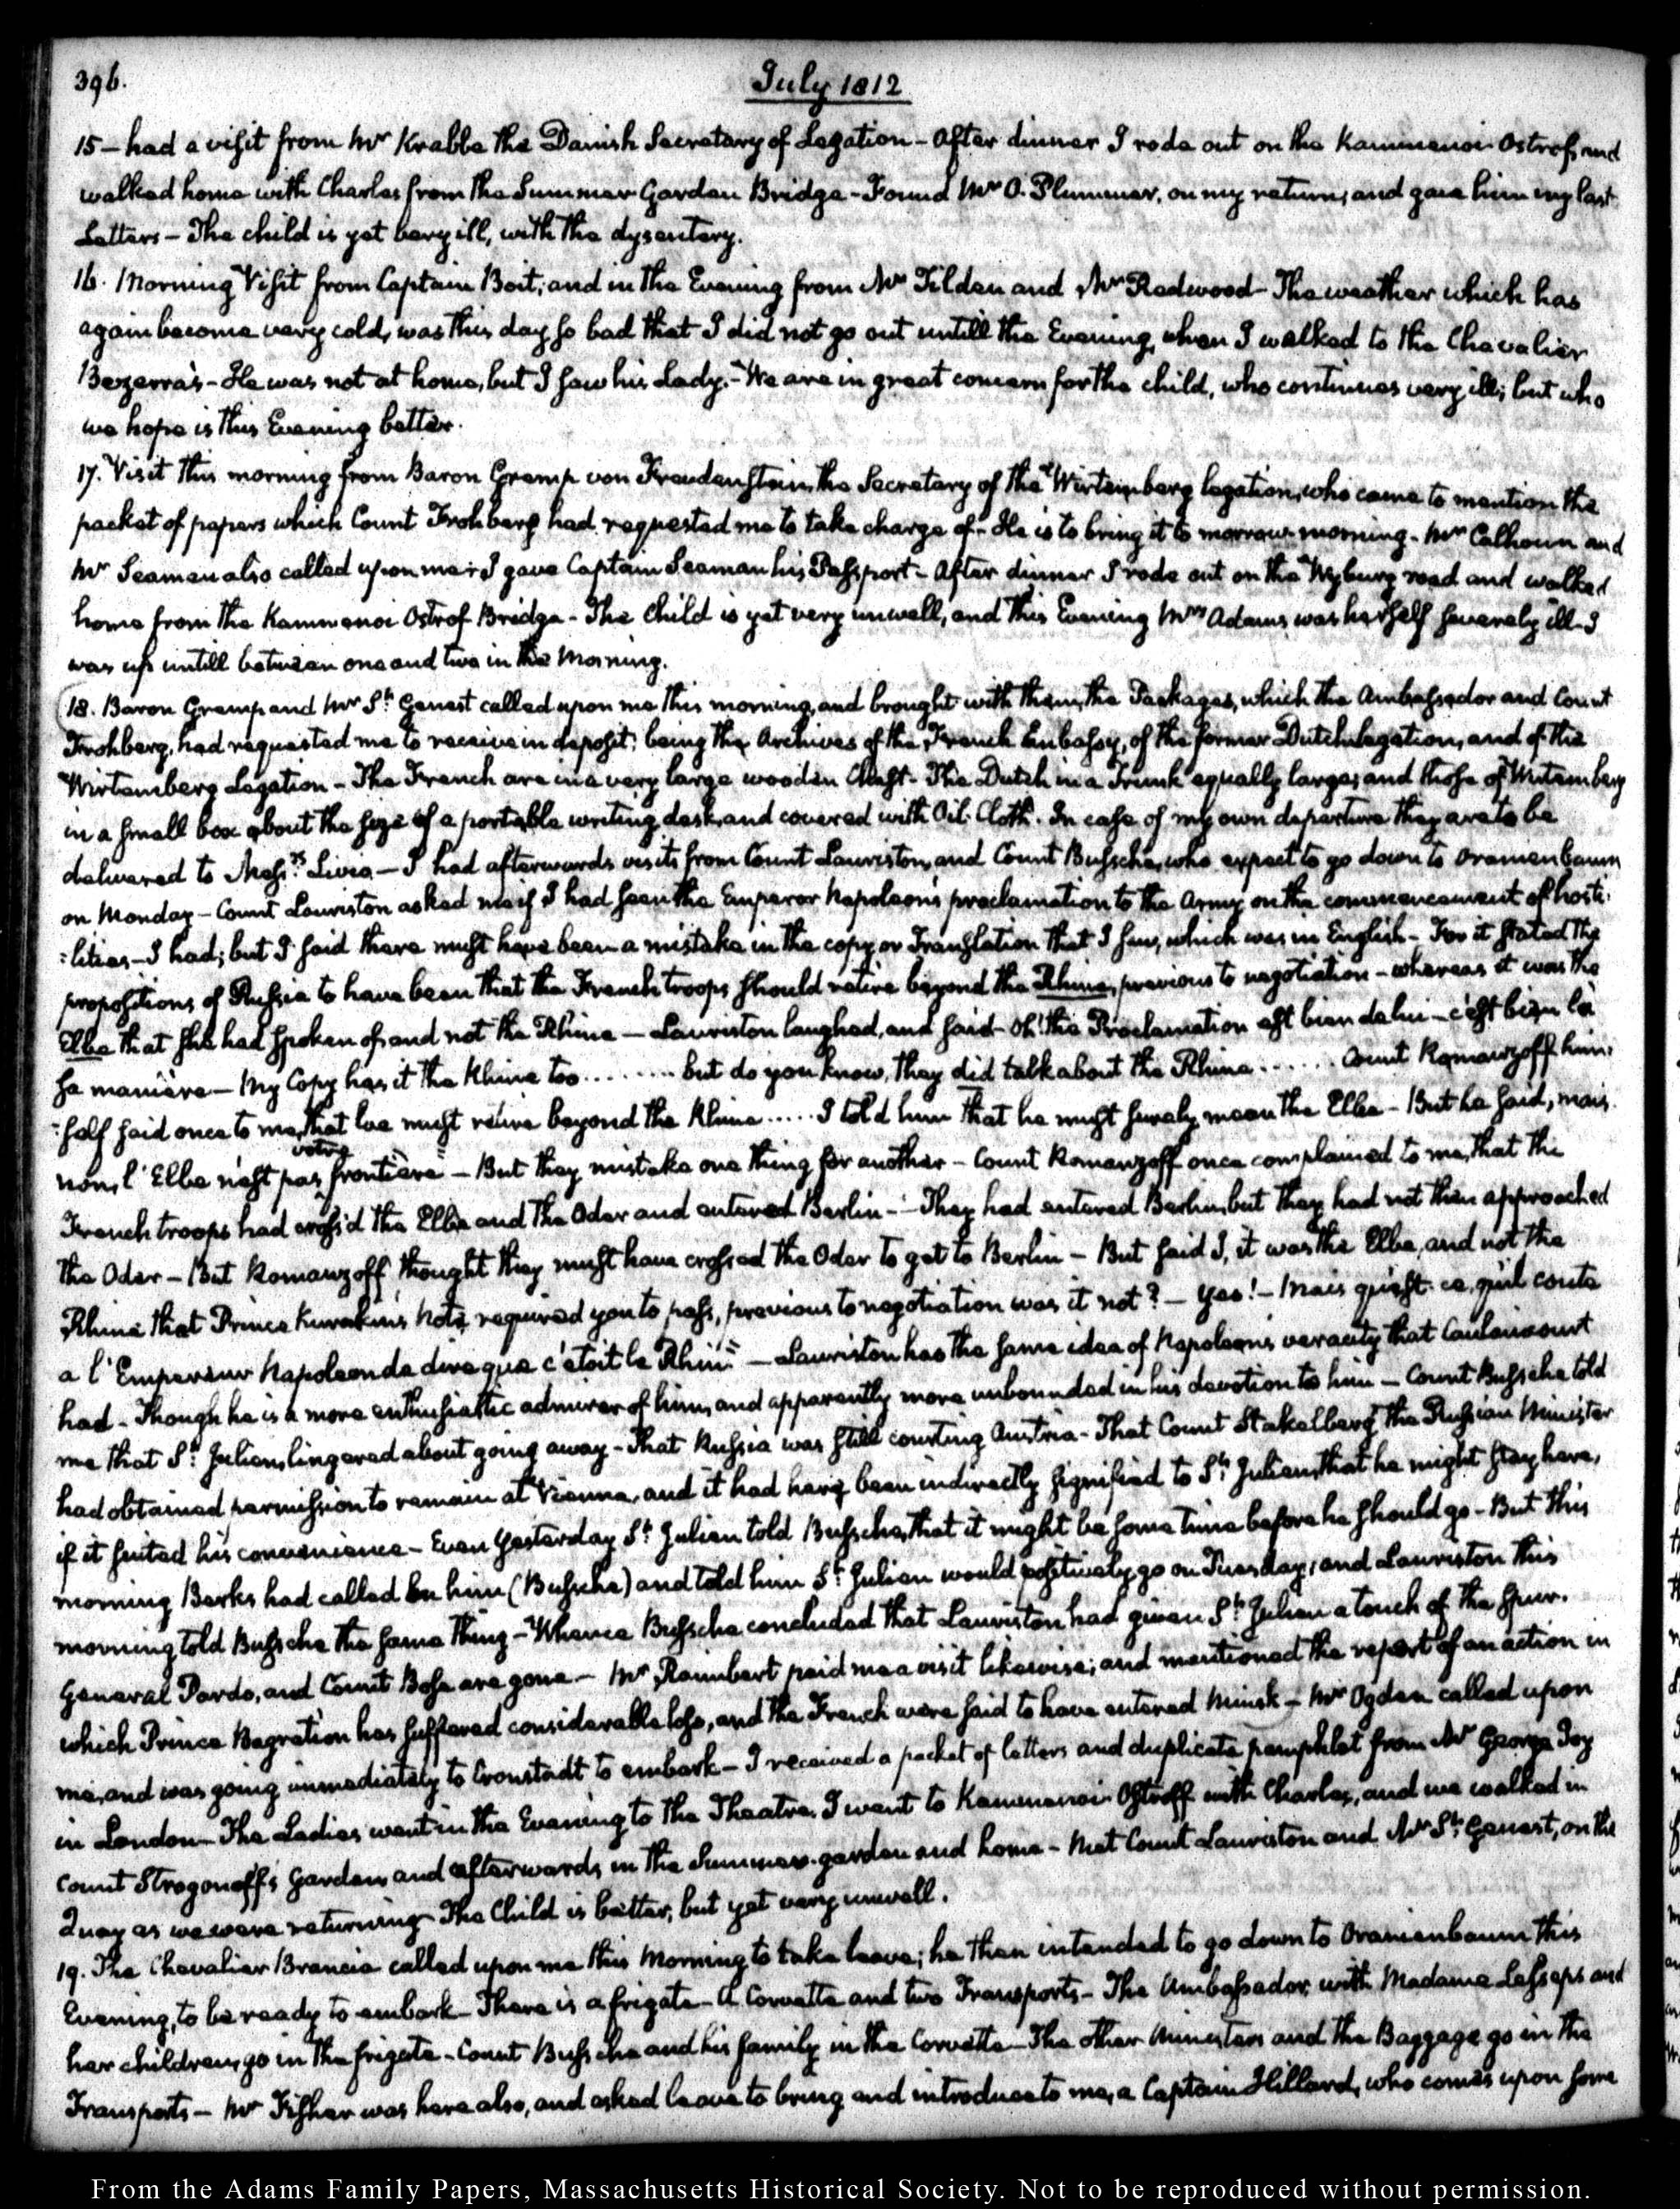 396.
July 1812
15 – had a visit from Mr Krabbe the Danish Secretary of Legation – After dinner I rode out on the Kammenoi Ostrof, and
walked home with Charles from the Summer Garden Bridge – Found Mr O. Plummer, on my return, and gave him my last
Letters – The child is yet very ill, with the dysentery.
16. Morning Visit from Captain Boit; and in the Evening from Mr Tilden and Mr Redwood – The weather which has
again become very cold, was this day so bad that I did not go out untill the Evening, when I walked to the Chevalier
Bezerra's – He was not at home, but I saw his Lady. – We are in great concern for the child, who continues very ill; but who
we hope is this Evening better.
17. Visit this morning from Baron Gremp von Freudenstein, the Secretary of the Wirtemberg legation, who came to mention the
packet of papers which Count Frohberg had requested me to take charge of – He is to bring it to morrow morning – Mr Calhoun and
Mr Seaman also called upon me; I gave Captain Seaman his Passport – After dinner I rode out on the Wyburg road and walked
home from the Kammenoi Ostrof Bridge – The Child is yet very unwell, and this Evening Mrs Adams was herself severely ill – I
was up untill between one and two in the Morning.
18. Baron Gremp and Mr St. Genest called upon me this morning, and brought with them, the Packages, which the Ambassador and Count
Frohberg, had requested me to receive in deposit; being the Archives of the French Embassy, of the former Dutch legation, and of the
Wirtemberg Legation – The French are in a very large wooden Chest – The Dutch in a Trunk equally large; and those of Wirtemberg
in a small box about the size of a portable writing desk, and covered with Oil Cloth. In case of my own departure they are to be
delivered to Messrs. Livio – I had afterwards visits from Count Lauriston, and Count Bussche, who expect to go down to Oranienbaum
on Monday – Count Lauriston asked me if I had seen the Emperor Napoleon's proclamation to the Army on the commencement of hosti:
:lities – I had; but I said there must have been a mistake in the copy or Translation that I saw, which was in English – For it stated the
propositions of Russia to have been that the French troops should retire beyond the Rhine, previous to negotiation – whereas it was the
Elbe that she had spoken of, and not the Rhine – Lauriston laughed, and said – Oh! the Proclamation est bien de lui – c'est bien là
sa manière – My Copy has it the Rhine too ........ but do you know, they did talk about the Rhine ...... Count Romanzoff him:
:self said once to me, that we must retire beyond the Rhine ..... I told him that he must surely mean the Elbe – But he said, mais
non, l'Elbe n'est pas votre frontière – But they mistake one thing for another – Count Romanzoff once complained to me, that the
French troops had cross'd the Elbe and the Oder and entered Berlin – They had entered Berlin, but they had not then approached
the Oder – But Romanzoff, thought they must have crossed the Oder to get to Berlin – But said I, it was the Elbe, and not the
Rhine that Prince Kurakin's Note, required you to pass, previous to negotiation was it not? – Yes! – Mais qu'est ce, qu'il coute
a l'Empereur Napoleon de dire que c'étoit le Rhin – Lauriston has the same idea of Napoleon's veracity that Caulaincourt
had – Though he is a more enthusiastic admirer of him, and apparently more unbounded in his devotion to him – Count Bussche told
me that St. Julien, lingered about going away – That Russia was still courting Austria – That Count Stakelberg the Russian Minister
had obtained permission to remain at Vienna, and it had here been indirectly signified to St. Julien, that he might stay here,
if it suited his convenience – Even Yesterday St. Julien told Bussche, that it might be some time before he should go – But this
morning Berks had called on him (Bussche) and told him St. Julien would positively go on Tuesday; and Lauriston this
morning told Bussche the same thing – Whence Bussche concluded that Lauriston had given St. Julien a touch of the spur.
General Pardo, and Count Bose are gone – Mr Raimbert paid me a visit likewise; and mentioned the report of an action in
which Prince Bagration has suffered considerable loss, and the French were said to have entered Minsk – Mr Ogden called upon
me, and was going immediately to Cronstadt to embark – I received a packet of letters and duplicate pamphlet from Mr George Joy
in London – The Ladies went in the Evening to the Theatre. I went to Kammenoi Ostroff with Charles, and we walked in
Count Strogonoff's Garden, and afterwards in the Summer-garden and home – Met Count Lauriston and Mr St. Genest, on the
Quay as we were returning – The Child is better, but yet very unwell.
19. The Chevalier Brancia called upon me this Morning to take leave; he then intended to go down to Oranienbaum this
Evening, to be ready to embark – There is a frigate – A Corvette and two Transports – The Ambassador, with Madame Lesseps and
her children, go in the frigate – Count Bussche and his family in the Corvette – The other Ministers and the Baggage go in the
Transports – Mr Fisher was here also, and asked leave to bring and introduce to me, a Captain Hillard, who comes upon some
From the Adams Family Papers, Massachusetts Historical Society. Not to be reproduced without permission.